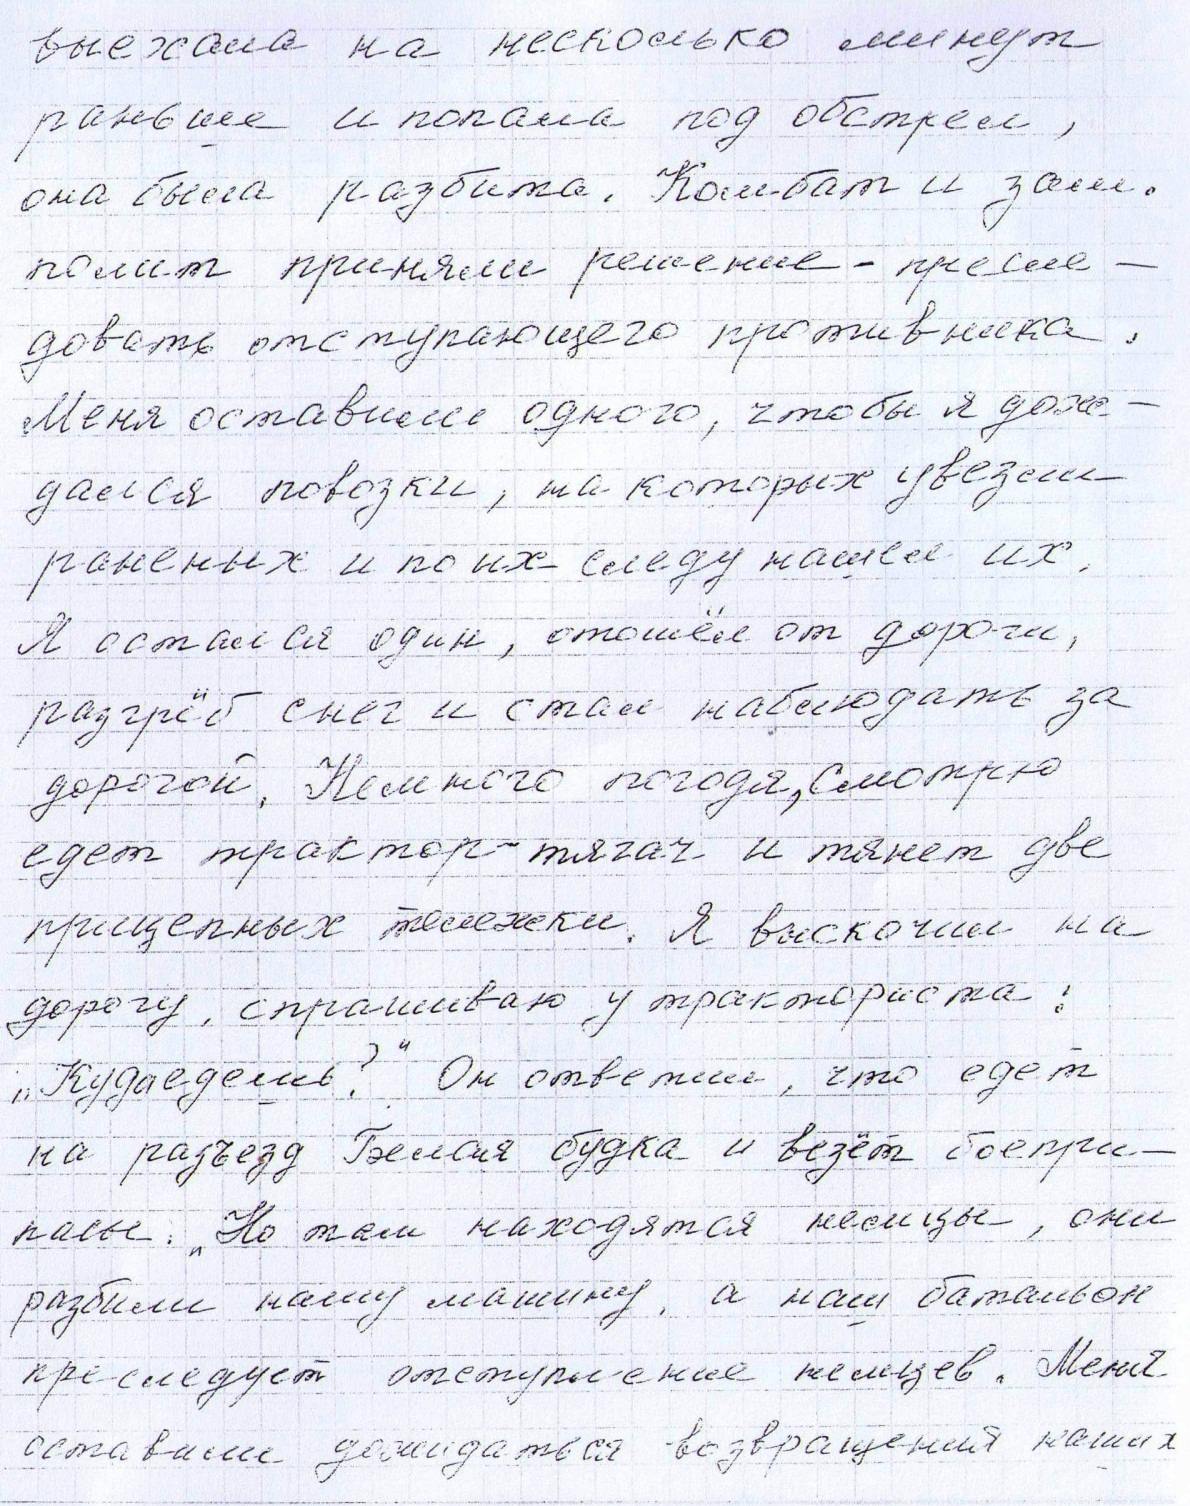 выехала на несколько минут
раньше и попала под обстрел,
она была разбита. Комбат и зам.
полит приняли решение - пресле-
довать отступающего противника.
Меня оставили одного, чтобы я дож-
дался повозки, на которых увезли
раненых и по их следу нашел их.
Я остался один, отошёл от дороги,
разгрёб снег и стал наблюдать за
дорогой. Немного погодя, смотрю
едет трактор-тягач и тянет две
прицепных тележки. Я выскочил на
дорогу, спрашиваю у тракториста:
„Куда едешь?" Он ответил, что едет
на разъезд Белая будка и везёт боепри-
пасы. „Но там находятся немцы, они
разбили нашу машину, а наш батальон
преследует отступление немцев. Меня
оставили дожидаться возвращения наших